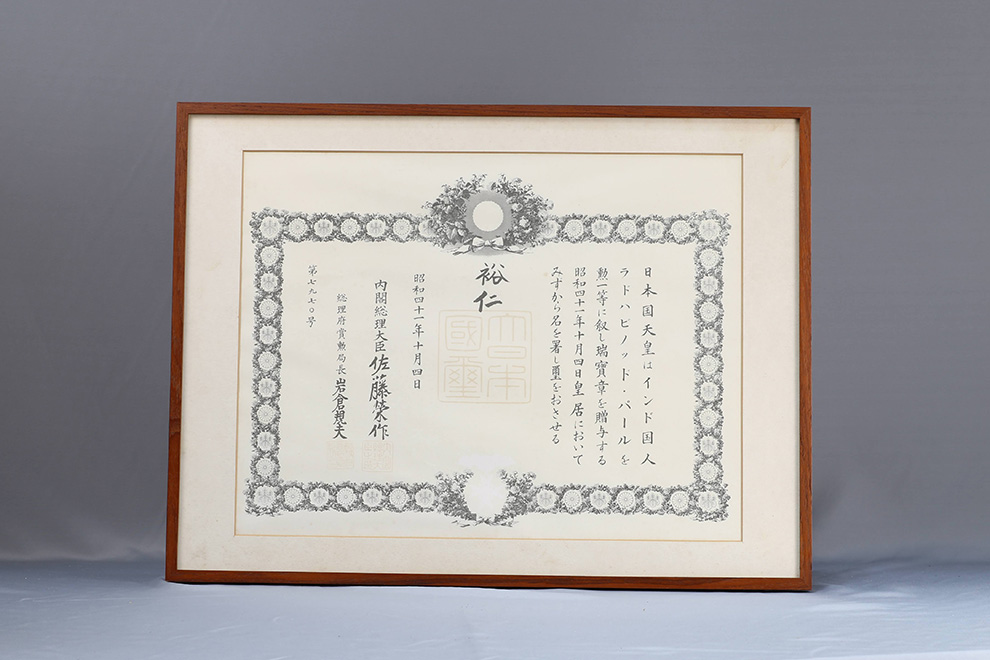 日本国天皇はインド国人
ラドハビノッド・パールを
勲一等に叙し瑞寶章を贈与する
昭和四十一年十月四日皇居において
みずから名を署し璽をおさせる
裕仁
大日本國璽
昭和四十一年十月四日
内閣総理大臣 佐藤榮作
総理府賞勲局長 岩倉規夫
第七九七〇号